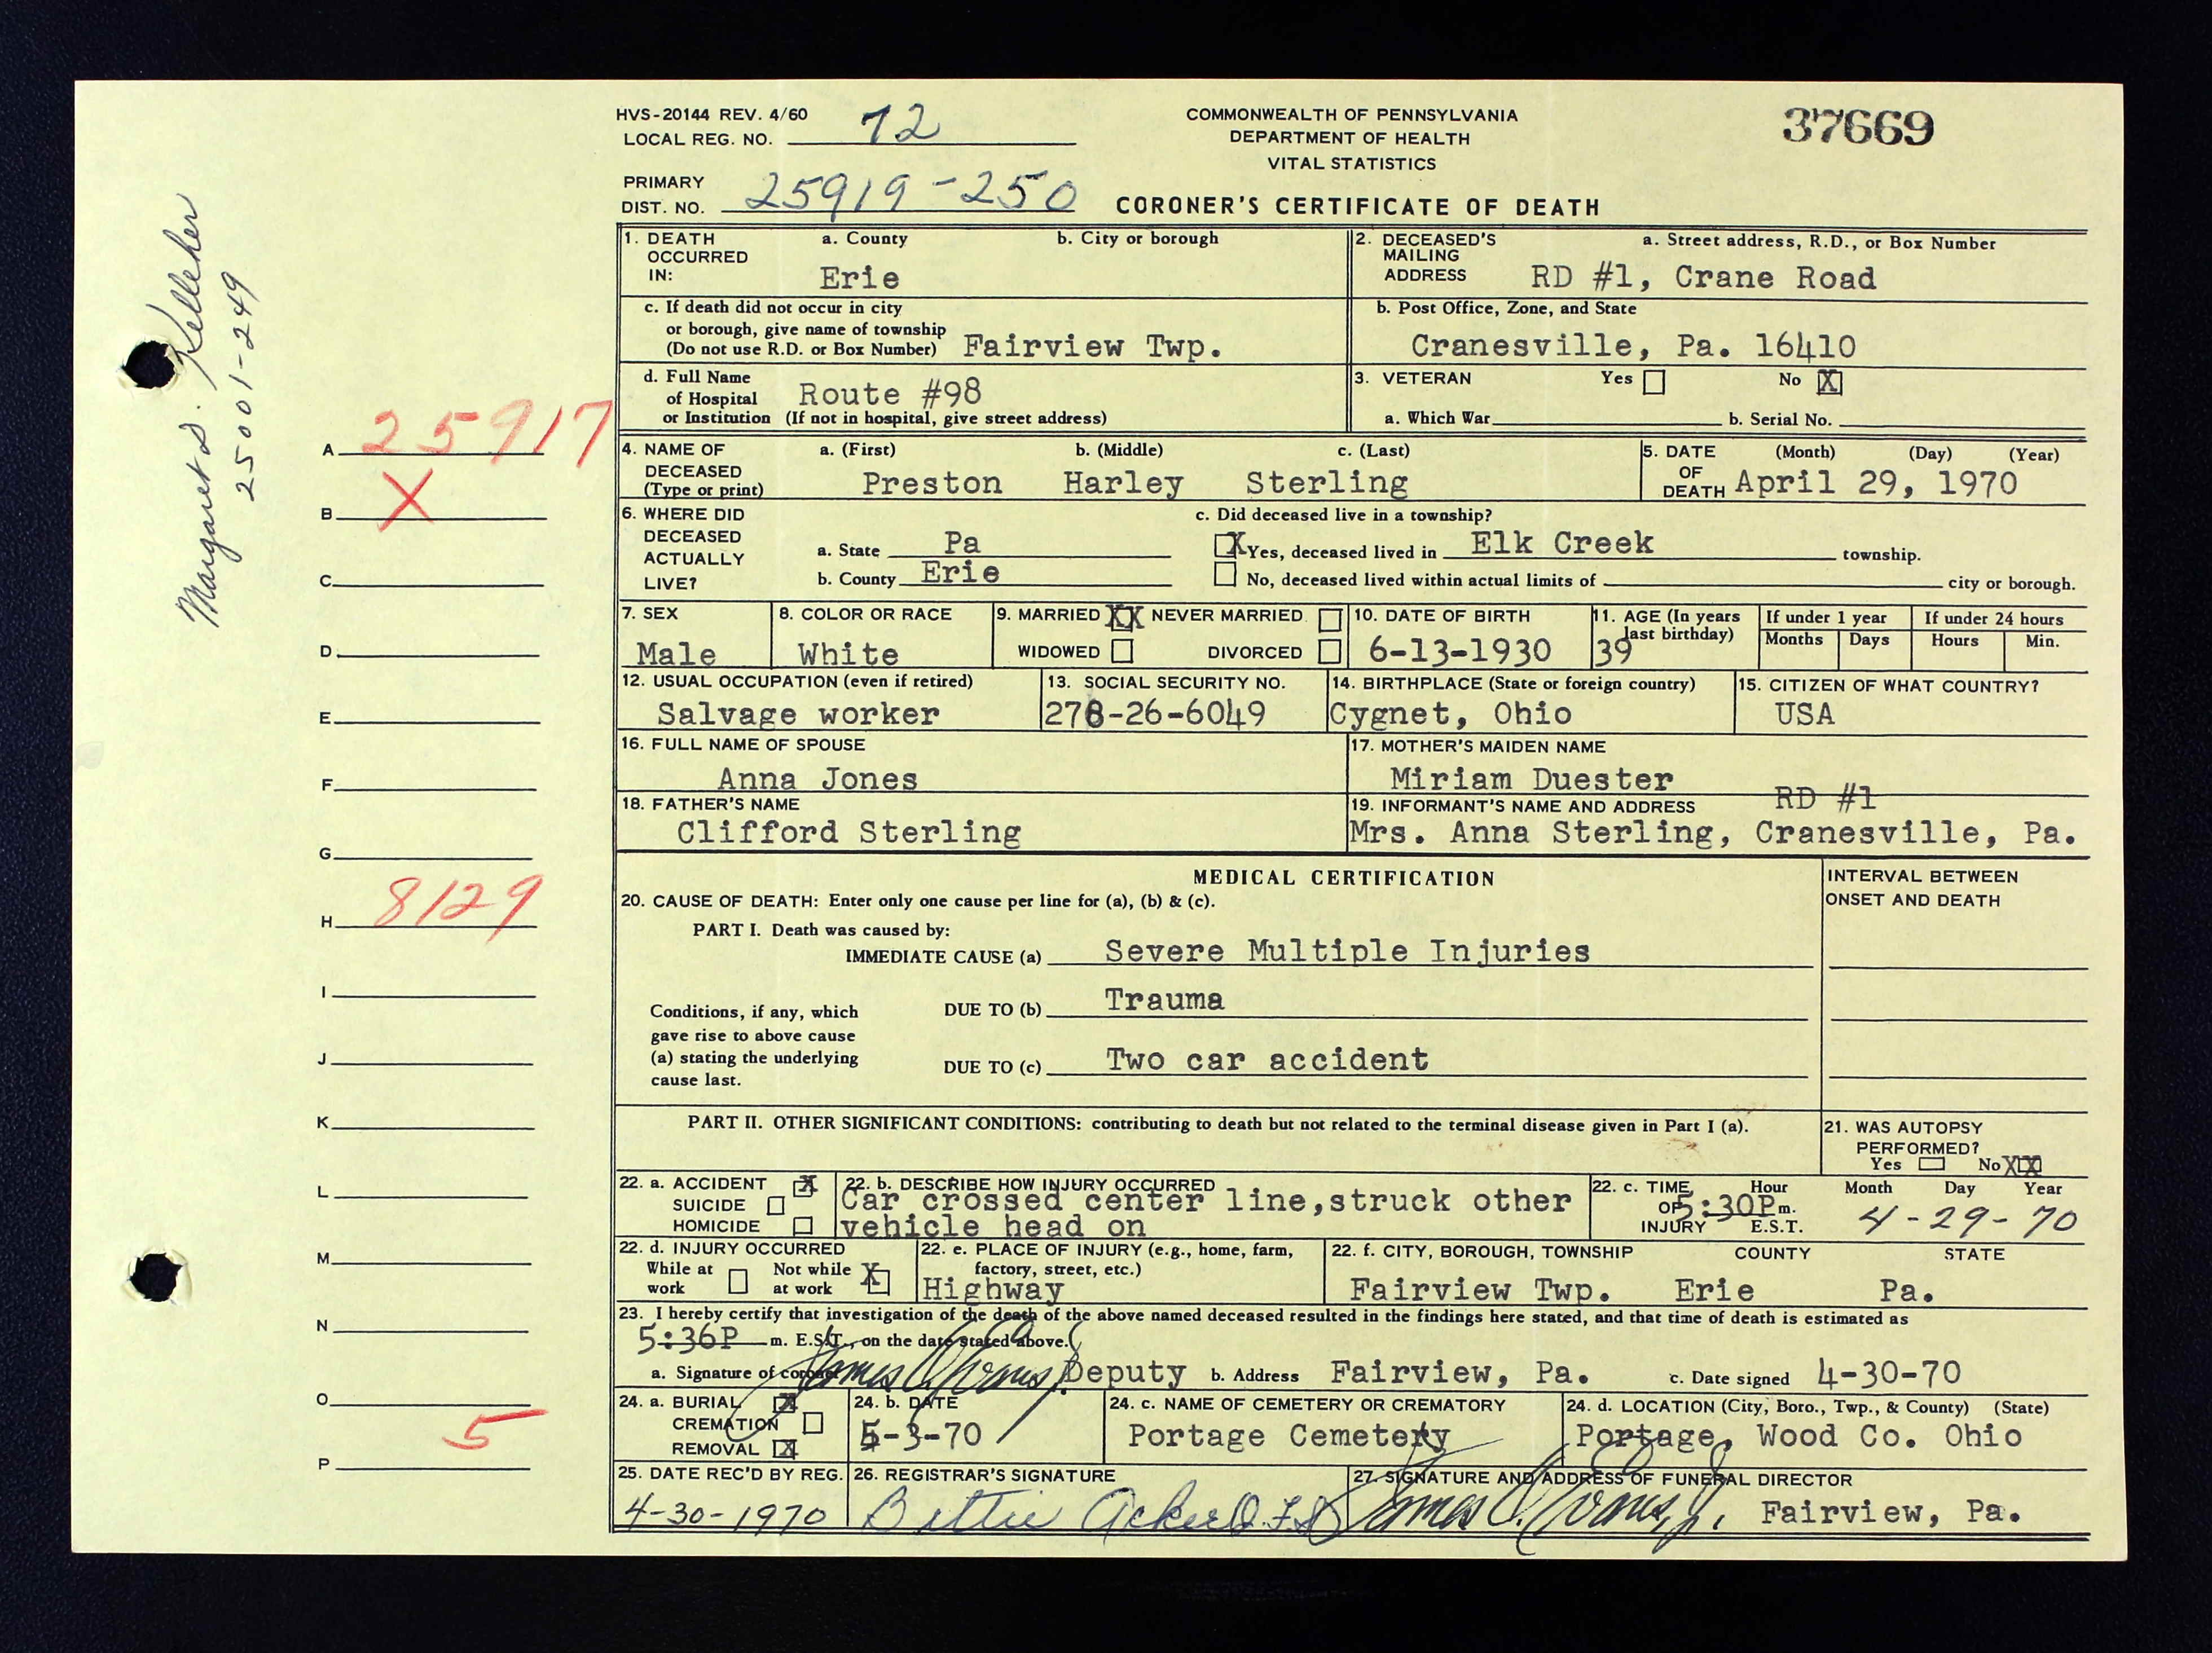 HVS-20144 REV. 4/60
LOCAL REG. NO. 72
COMMONWEALTH OF PENNSYLVANIA
DEPARTMENT OF HEALTH
VITAL STATISTICS
37669
PRIMARY
DIST. NO. 25919-250
CORONER'S CERTIFICATE OF DEATH
Margaret D. Kelleher
25001-249
A 25917
B X
C
D.
E
F
G
H 8129
I
J
K
L
M
N
O
5
P
1. DEATH OCCURRED IN:
a. County
Erie
b. City or borough
c. If death did not occur in city
or borough, give name of township
(Do not use R.D. or Box Number) Fairview Twp.
d. Full Name
of Hospital
or Institution
Route #98
(If not in hospital, give street address)
2. DECEASED'S MAILING ADDRESS
a. Street address, R.D., or Box Number
RD #1, Crane Road
b. Post Office, Zone, and State
Cranesville, Pa. 16410
3. VETERAN Yes No X
a. Which War b. Serial No.
4. NAME OF DECEASED
(Type or print)
a. (First) b. (Middle) c. (Last)
Preston Harley Sterling
5. DATE OF DEATH
(Month) (Day) (Year)
April 29, 1970
6. WHERE DID DECEASED ACTUALLY LIVE?
a. State Pa
b. County Erie
c. Did deceased live in a township?
X Yes, deceased lived in Elk Creek township.
No, deceased lived within actual limits of city or borough.
7. SEX
Male
8. COLOR OR RACE
White
9. MARRIED XX NEVER MARRIED
WIDOWED DIVORCED
10. DATE OF BIRTH
6-13-1930
11. AGE (In years last birthday)
39
If under 1 year
Months Days
If under 24 hours
Hours Min.
12. USUAL OCCUPATION (even if retired)
Salvage worker
13. SOCIAL SECURITY NO.
278-26-6049
14. BIRTHPLACE (State or foreign country)
Cygnet, Ohio
15. CITIZEN OF WHAT COUNTRY?
USA
16. FULL NAME OF SPOUSE
Anna Jones
17. MOTHER'S MAIDEN NAME
Miriam Duester
18. FATHER'S NAME
Clifford Sterling
19. INFORMANT'S NAME AND ADDRESS
RD #1
Mrs. Anna Sterling, Cranesville, Pa.
MEDICAL CERTIFICATION
INTERVAL BETWEEN
ONSET AND DEATH
20. CAUSE OF DEATH: Enter only one cause per line for (a), (b) & (c).
PART I. Death was caused by:
IMMEDIATE CAUSE (a) Severe Multiple Injuries
Conditions, if any, which
gave rise to above cause
(a) stating the underlying
cause last.
DUE TO (b) Trauma
DUE TO (c) Two car accident
PART II. OTHER SIGNIFICANT CONDITIONS: contributing to death but not related to the terminal disease given in Part I (a).
21. WAS AUTOPSY
PERFORMED?
Yes No XX
22. a. ACCIDENT X
SUICIDE
HOMICIDE
22. b. DESCRIBE HOW INJURY OCCURRED
Car crossed center line,struck other
vehicle head on
22. c. TIME OF INJURY
Hour Month Day Year
5:30P m.
E.S.T.
4-29-70
22. d. INJURY OCCURRED
While at work
Not while at work X
22. e. PLACE OF INJURY (e.g., home, farm,
factory, street, etc.)
Highway
22. f. CITY, BOROUGH, TOWNSHIP COUNTY STATE
Fairview Twp. Erie Pa.
23. I hereby certify that investigation of the death of the above named deceased resulted in the findings here stated, and that time of death is estimated as
5:36P m. E.S.T., on the date stated above.
a. Signature of coroner James C. Evans, Jr. Deputy b. Address Fairview, Pa. c. Date signed 4-30-70
24. a. BURIAL X
CREMATION
REMOVAL X
24. b. DATE
5-3-70
24. c. NAME OF CEMETERY OR CREMATORY
Portage Cemetery
24. d. LOCATION (City, Boro., Twp., & County) (State)
Portage, Wood Co. Ohio
25. DATE REC'D BY REG.
4-30-1970
26. REGISTRAR'S SIGNATURE
Bettie
27. SIGNATURE AND ADDRESS OF FUNERAL DIRECTOR
James C. Evans, Jr. Fairview, Pa.